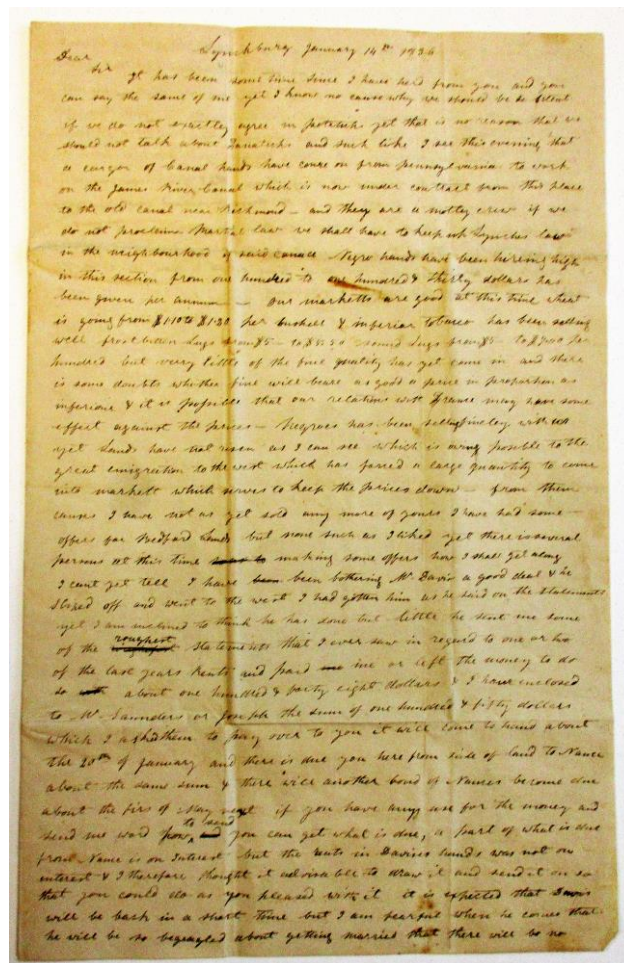 Lynchburg January 14th 1836
Dear
Sir It has been some time since I have herd from you and you
can say the same of me yet I know no cause why we should be so silent
if we do not exactly agree in poleticks yet that is no reason that we
should not talk about Fanaticks and such like I see this evening that
a cargo of Canal hands have come on from pennsylvania to work
on the James River Canal which is now under contract from this place
to the old canal near Richmond – and they are a motley crew if we
do not proclame Martial law we shall have to keep up Lynches law
in the neighbourhood of said canall Negro hands have been hireing high
in this section from one hundred to one hundred & thirty dollars has
been given per annum – our marketts are good at this time wheat
is going from $1.10 to $1.20 per bushell & inferior tobacco has been selling
well frost bitten Lugs from $5– to $5.50 sound Lugs from to per
hundred but verry little of the fine quality has yet come in and there
is some doubts whether fine will beare as good a price in proportion as
inferiour & it is possible that our relations with France may have some
effect against the prices – Negroes has been selling finely with us
yet Lands have not risen as I can see which is owing possible to the
great emigration to the west which has forced a large quantity to come
into markett which serves to keep the prices down – from them
causes I have not as yet sold any more of yours I have had some
offers for Bedford Lands but none such as I liked yet there is several
persons at this time making some offers how I shall get along
I cant yet tell I have been bothering Mr Davis a good deal & he
sliped off and went to the west I had gotten him as he said on the statements
yet I am inclined to think he has done but little he sent me some
of the roughest statements that I ever saw in regard to one or two
of the last years Rents and paid me or left the money to do
so about one hundred & forty eight dollars & I have enclosed
to Mr Saunders or Joseph the sum of one hundred & fifty dollars
which I asked them to pay over to you it will come to hand about
the 20th of January and there is due you here from sale of land to Nance
about the same sum & there will another bond of Nances become due
about the firs of May next if you have any use for the money and
send me word how to send you can get what is due, a part of what is due
from Nance is on Interest but the rents in Davises hands was not on
interest & I therefore thought it advisable to draw it and send it on so
that you could do as you pleased with it it is expected that Davis
will be back in a short time but I am fearful when he comes that
he will be so about getting married that there will be no